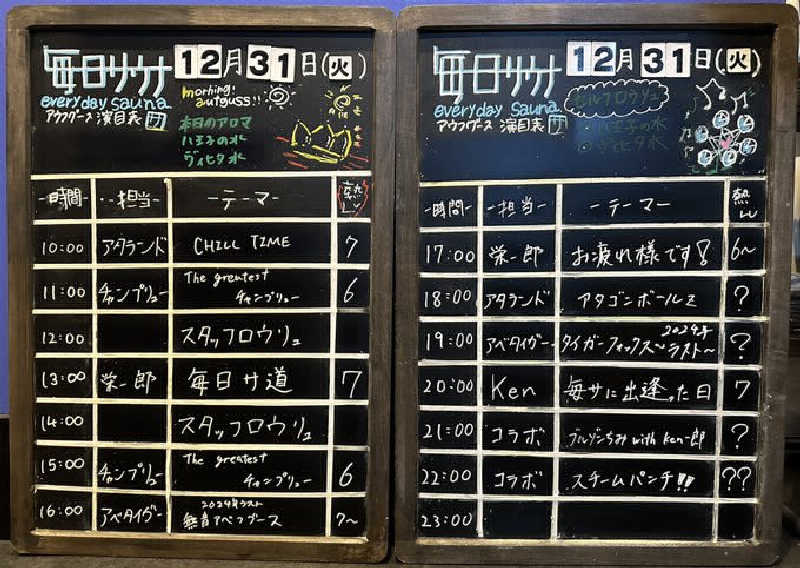 毎日サウナ 12月31日(火)
everyday sauna
アウフグース 演目表
morning!
autguss!!
本日のアロマ
八王子の水
ヴィヒタ水
-時間- -担当- -テーマ- 熱レベ
10:00 アタランド CHILL TIME 7
11:00 チャンプリュー The greatest チャンプリュー 6
12:00 スタッフロウリュ
13:00 栄一郎 毎日サ道 7
14:00 スタッフロウリュ
15:00 チャンプリュー The greatest チャンプリュー 6
16:00 アベタイガー 2024年ラスト 無音アベフグース 7~
毎日サウナ 12月31日(火)
everyday sauna
アウフグース 演目表
八王子の水
ヴィヒタ水
-時間- -担当- -テーマ-
17:00 栄一郎 お疲れ様です! 6~
18:00 アタランド アタゴンボールZ ?
19:00 アベタイガー タイガーフォックス 2024年 ~ラスト~ ?
20:00 Ken 毎サに出逢った日 7
21:00 コラボ with Ken一郎 ?
22:00 コラボ スチームパンチ!! ??
23:00